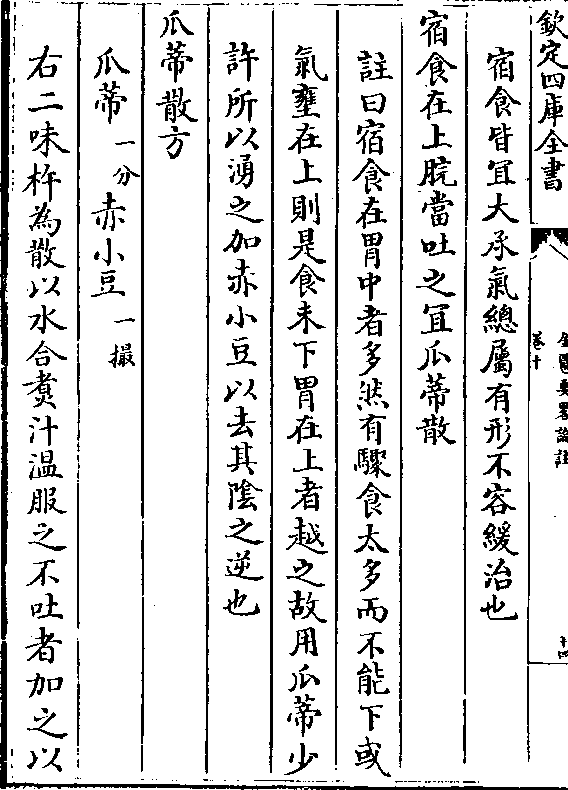 欽定四庫全書
金匱要略論註
卷十
十四
宿食皆冝大承氣總屬有形不容緩治也
宿食在上脘當吐之冝瓜蒂散
註曰宿食在胃中者多然有驟食太多而不能下或
氣壅在上則是食未下胃在上者越之故用瓜蒂少
許所以湧之加赤小豆以去其陰之逆也
瓜蒂散方
瓜蒂一分赤小豆一撮
右二味杵為散以水合煑汁温服之不吐者加之以